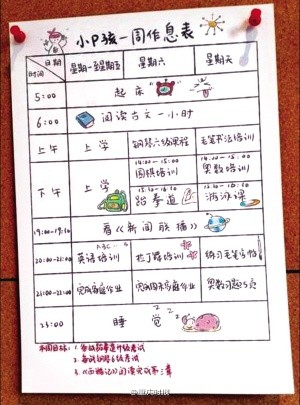 小P孩一周作息表
日期 星期一至星期五 星期六 星期天
时间
5:00 起床
6:00 阅读古文一小时
上午 上学 钢琴六级课程 毛笔书法培训
下午 上学 14:00-15:00 14:00-15:00
围棋培训 奥数培训
跆拳道 游泳课
19:00-19:30 看《新闻联播》
20:00-21:00 英语培训 拉丁舞培训 练习毛笔字帖
21:00-22:00 完成家庭作业 完成周末家庭作业 奥数习题5页
23:00 睡觉
本周目标：1、参加跆拳道升级考试
2、备战钢琴6级考试
3、《西游记》阅读完成第三章